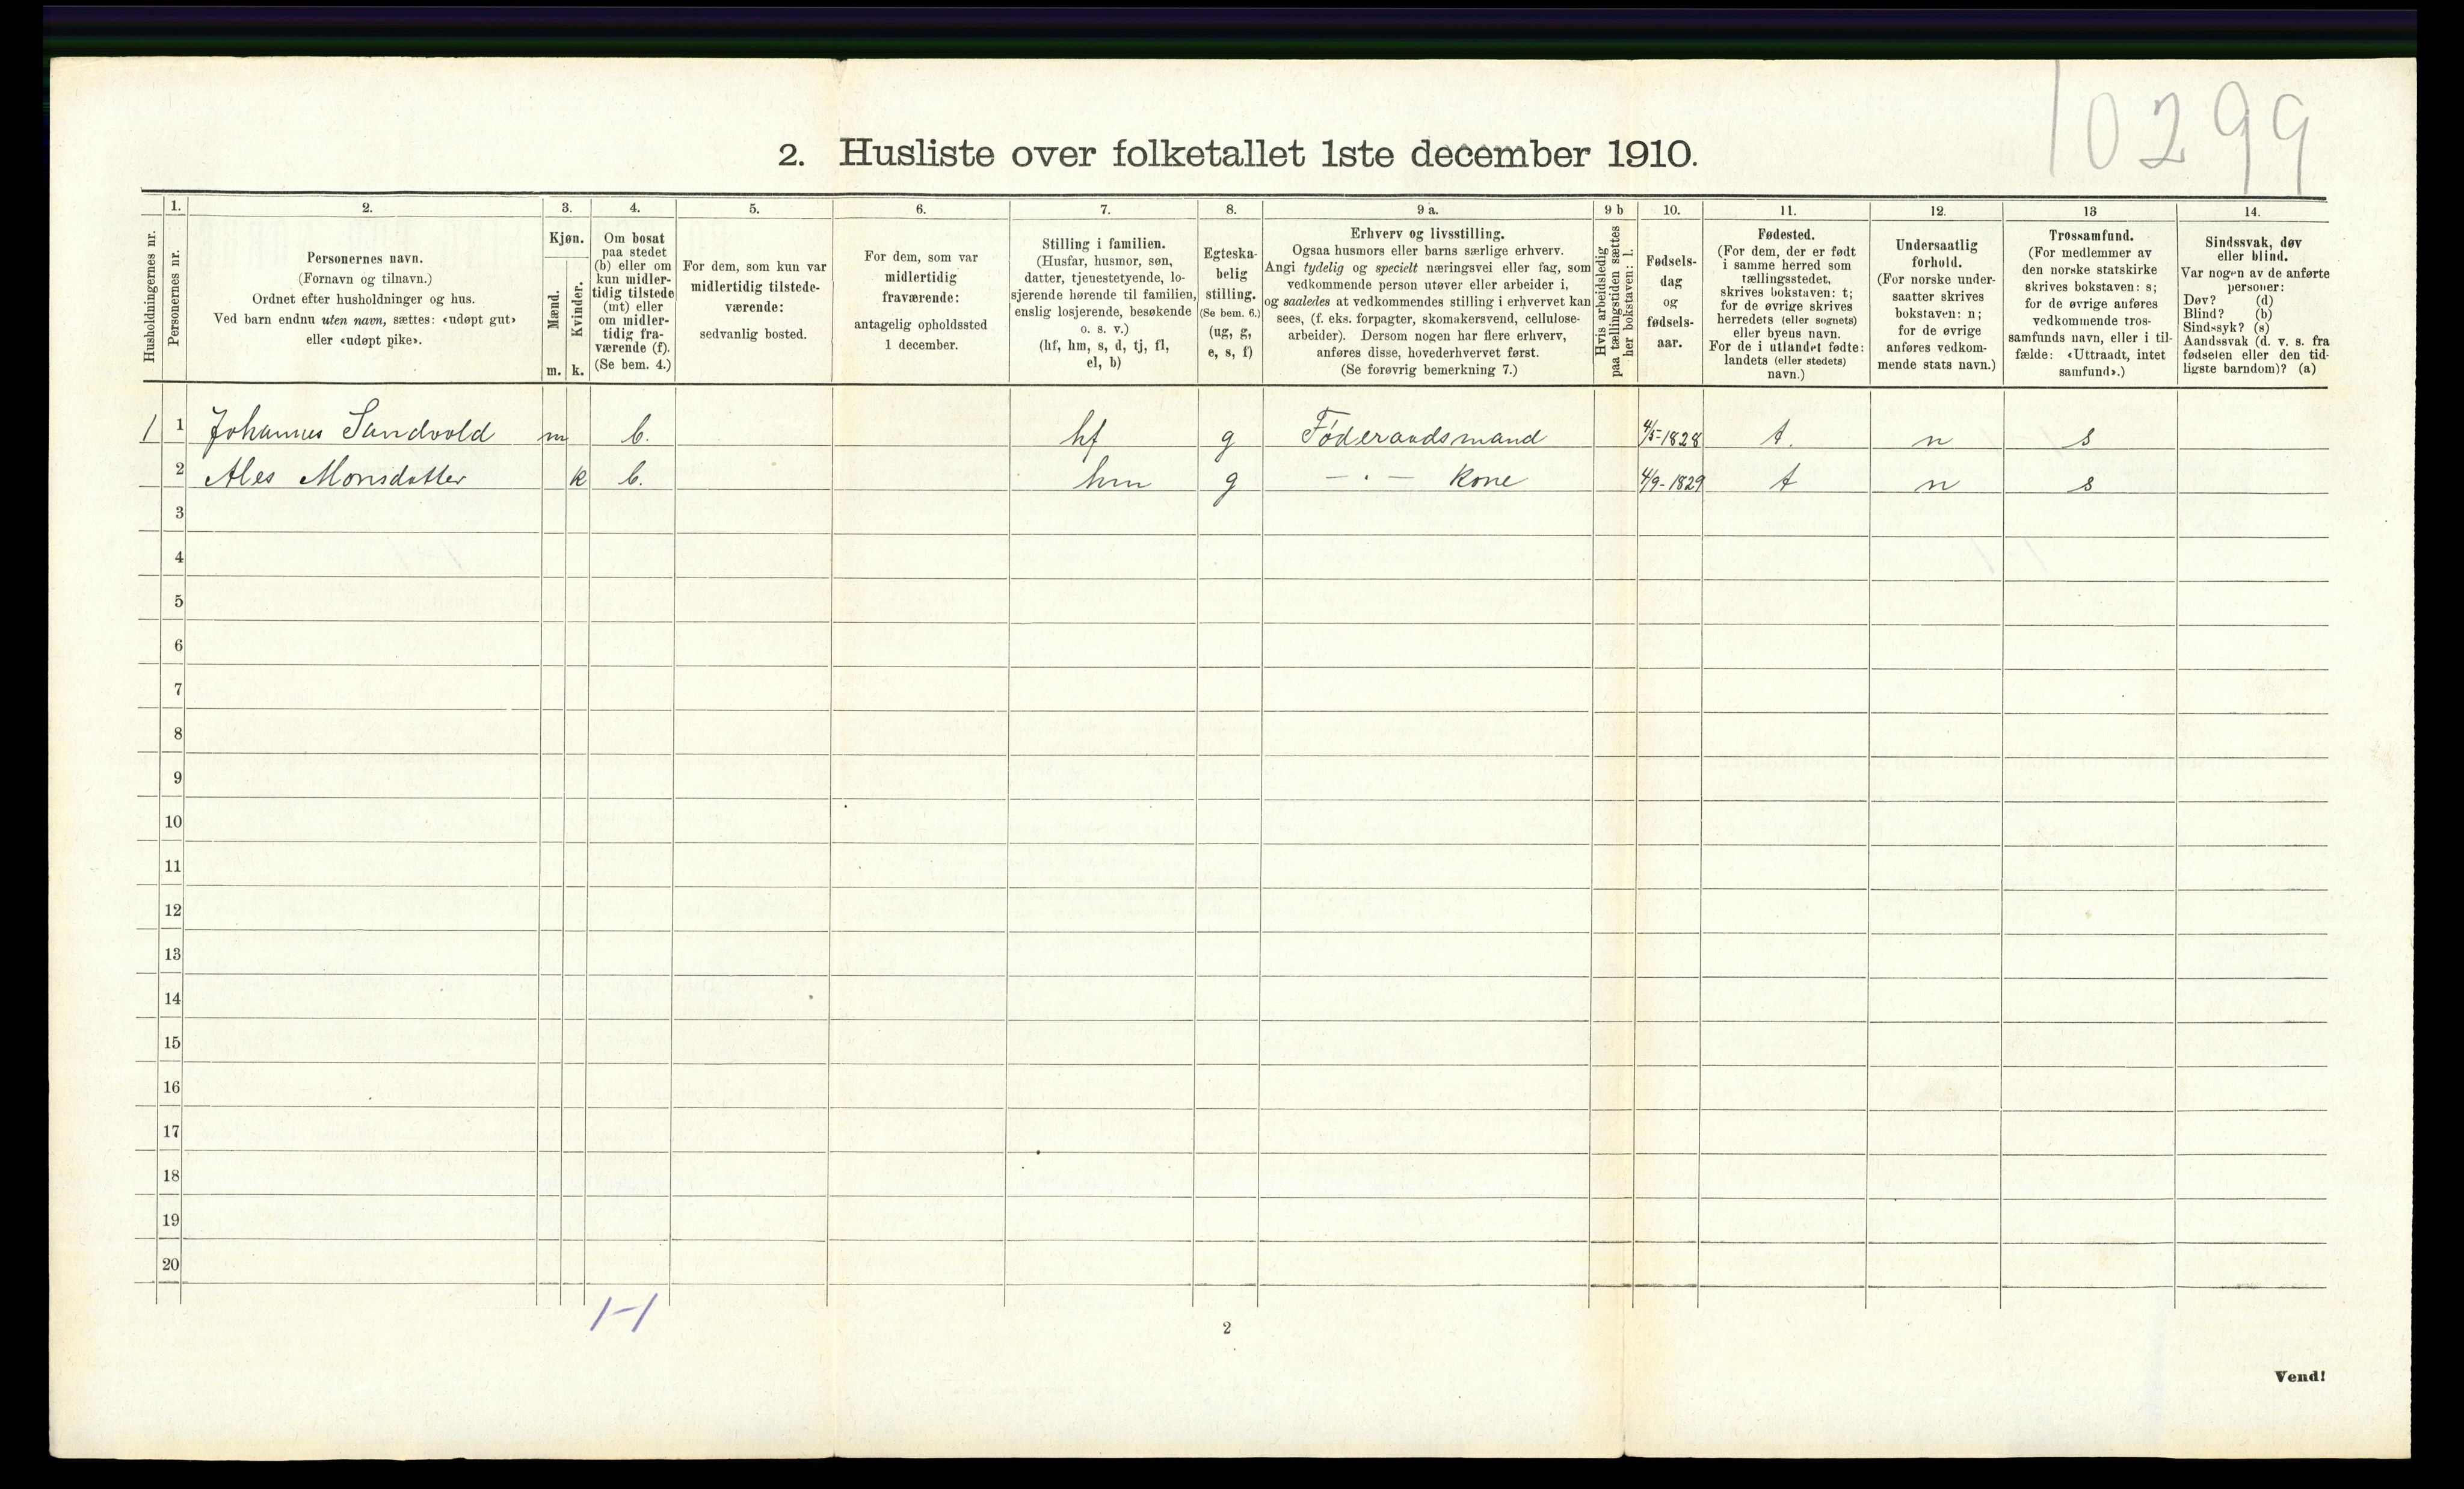 10299
2. Husliste over folketallet 1ste december 1910.
Husholdningernes nr.
1.
Personernes nr.
2.
Personernes navn.
(Fornavn og tilnavn.)
Ordnet efter husholdninger og hus.
Ved barn endnu uten navn, sættes: «udøpt gut»
eller «udøpt pike».
3.
Kjøn.
Mænd.
Kvinder.
m. k.
4.
Om bosat
paa stedet
(b) eller om
kun midler-
tidig tilstede
(mt) eller
om midler-
tidig fra-
værende (f).
(Se bem. 4.)
5.
For dem, som kun var
midlertidig tilstede-
værende:
sedvanlig bosted.
6.
For dem, som var
midlertidig
fraværende:
antagelig opholdssted
1 december.
7.
Stilling i familien.
(Husfar, husmor, søn,
datter, tjenestetyende, lo-
sjerende hørende til familien,
enslig losjerende, besøkende
o. s. v.)
(hf, hm, s, d, tj, fl,
el, b)
8.
Egteska-
belig
stilling.
(Se bem. 6.)
(ug, g,
e, s, f)
9 a.
Erhverv og livsstilling.
Ogsaa husmors eller barns særlige erhverv.
Angi tydelig og specielt næringsvei eller fag, som
vedkommende person utøver eller arbeider i,
og saaledes at vedkommendes stilling i erhvervet kan
sees, (f. eks. forpagter, skomakersvend, cellulose-
arbeider). Dersom nogen har flere erhverv,
anføres disse, hovederhvervet først.
(Se forøvrig bemerkning 7.)
9 b
Hvis arbeidsledig
paa tællingstiden sættes
her bokstaven: l.
10.
Fødsels-
dag
og
fødsels-
aar.
11.
Fødested.
(For dem, der er født
i samme herred som
tællingsstedet,
skrives bokstaven: t;
for de øvrige skrives
herredets (eller sognets)
eller byens navn.
For de i utlandet fødte:
landets (eller stedets)
navn.)
12.
Undersaatlig
forhold.
(For norske under-
saatter skrives
bokstaven: n;
for de øvrige
anføres vedkom-
mende stats navn.)
13
Trossamfund.
(For medlemmer av
den norske statskirke
skrives bokstaven: s;
for de øvrige anføres
vedkommende tros-
samfunds navn, eller i til-
fælde: «Uttraadt, intet
samfund».)
14.
Sindssvak, døv
eller blind.
Var nogen av de anførte
personer:
Døv? (d)
Blind? (b)
Sindssyk? (s)
Aandssvak (d. v. s. fra
fødselen eller den tid-
ligste barndom)? (a)
1 1 Johannes Sandvold m b. hf g Föderaadsmand 4/5-1828 t. n s
2 Ales Monsdatter k b. hm g — · — Kone 4/9-1829 t n s
3
4
5
6
7
8
9
10
11
12
13
14
15
16
17
18
19
20
1-1
2
Vend!